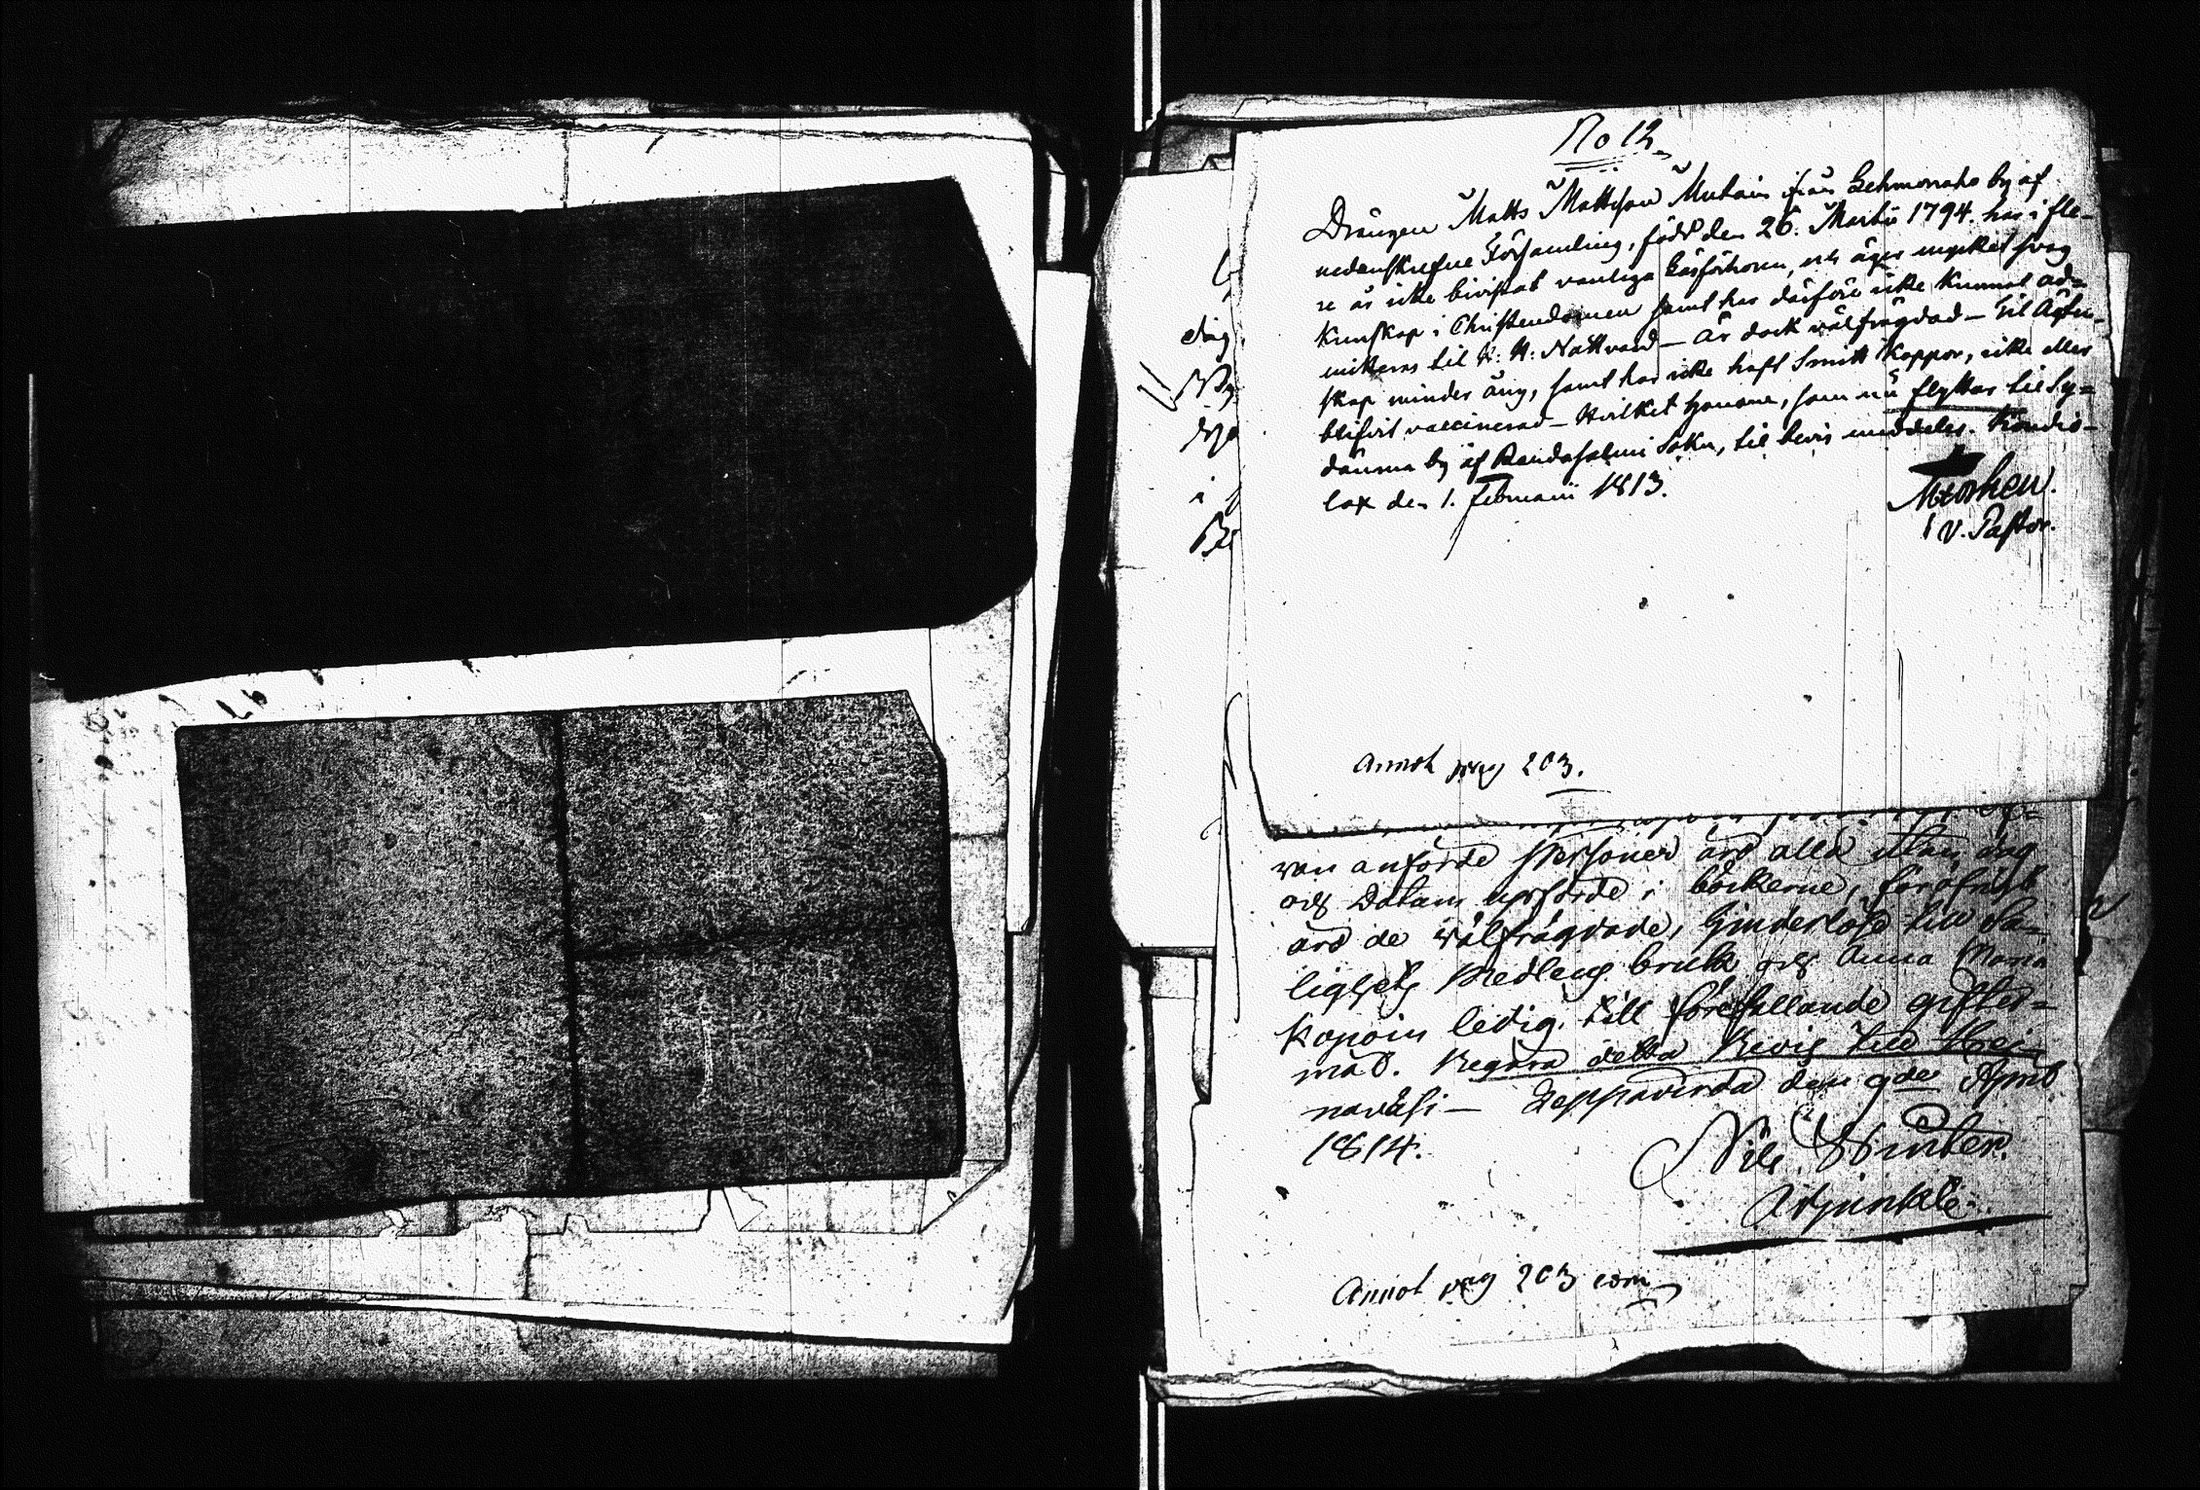 No 12.
Drängen Matts Mattsson Mutain från Lehmonaho by af
nedanskrefne Församling, född den 26. Martii 1794. har i fle-
re år icke bivistat vanliga Läsförhören, och äger mycket svag
kunskap i Christendomen samt har därföre icke kunnat ad-
mitteras til H: H: Nattvard — är dock välfrägdad — Til Äcten-
skap mindes äng, samt har icke haft Smitt koppor, icke eller
blifvit vaccinerad — Hvilket honom, som nu flyttar til Sy-
dänma by af Randasalmi Sokn, til bevis meddeles. Kondio-
lax den 1. februarii 1813.
V. Pastor.
Annot pag 203.
van anförde Personer äro alla utan dag
och Datum upförde i böckerne, föröfrigt
äro de välfrägdade, hinderlöse till Sa-
lighets Medlens bruk och Anna Maria
Kopoin ledig till förefallande gifter-
mål. Begära detta Bevis till Hei-
naväsi — Leppävirda den 9de April
1814.
Nils Winter.
Adjunkt
Annot pag 203
dag
i